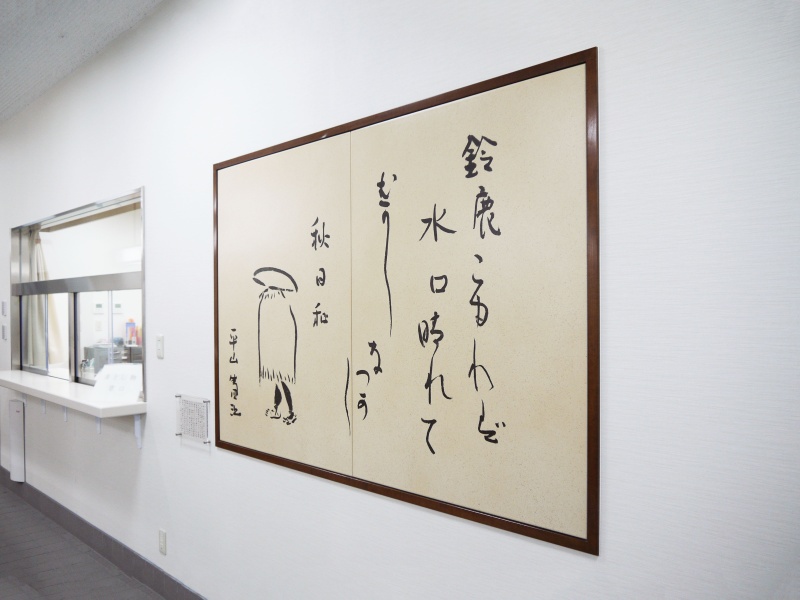 鈴鹿こゆれど
水口晴れて
むかし
なつかし
秋日和
平山